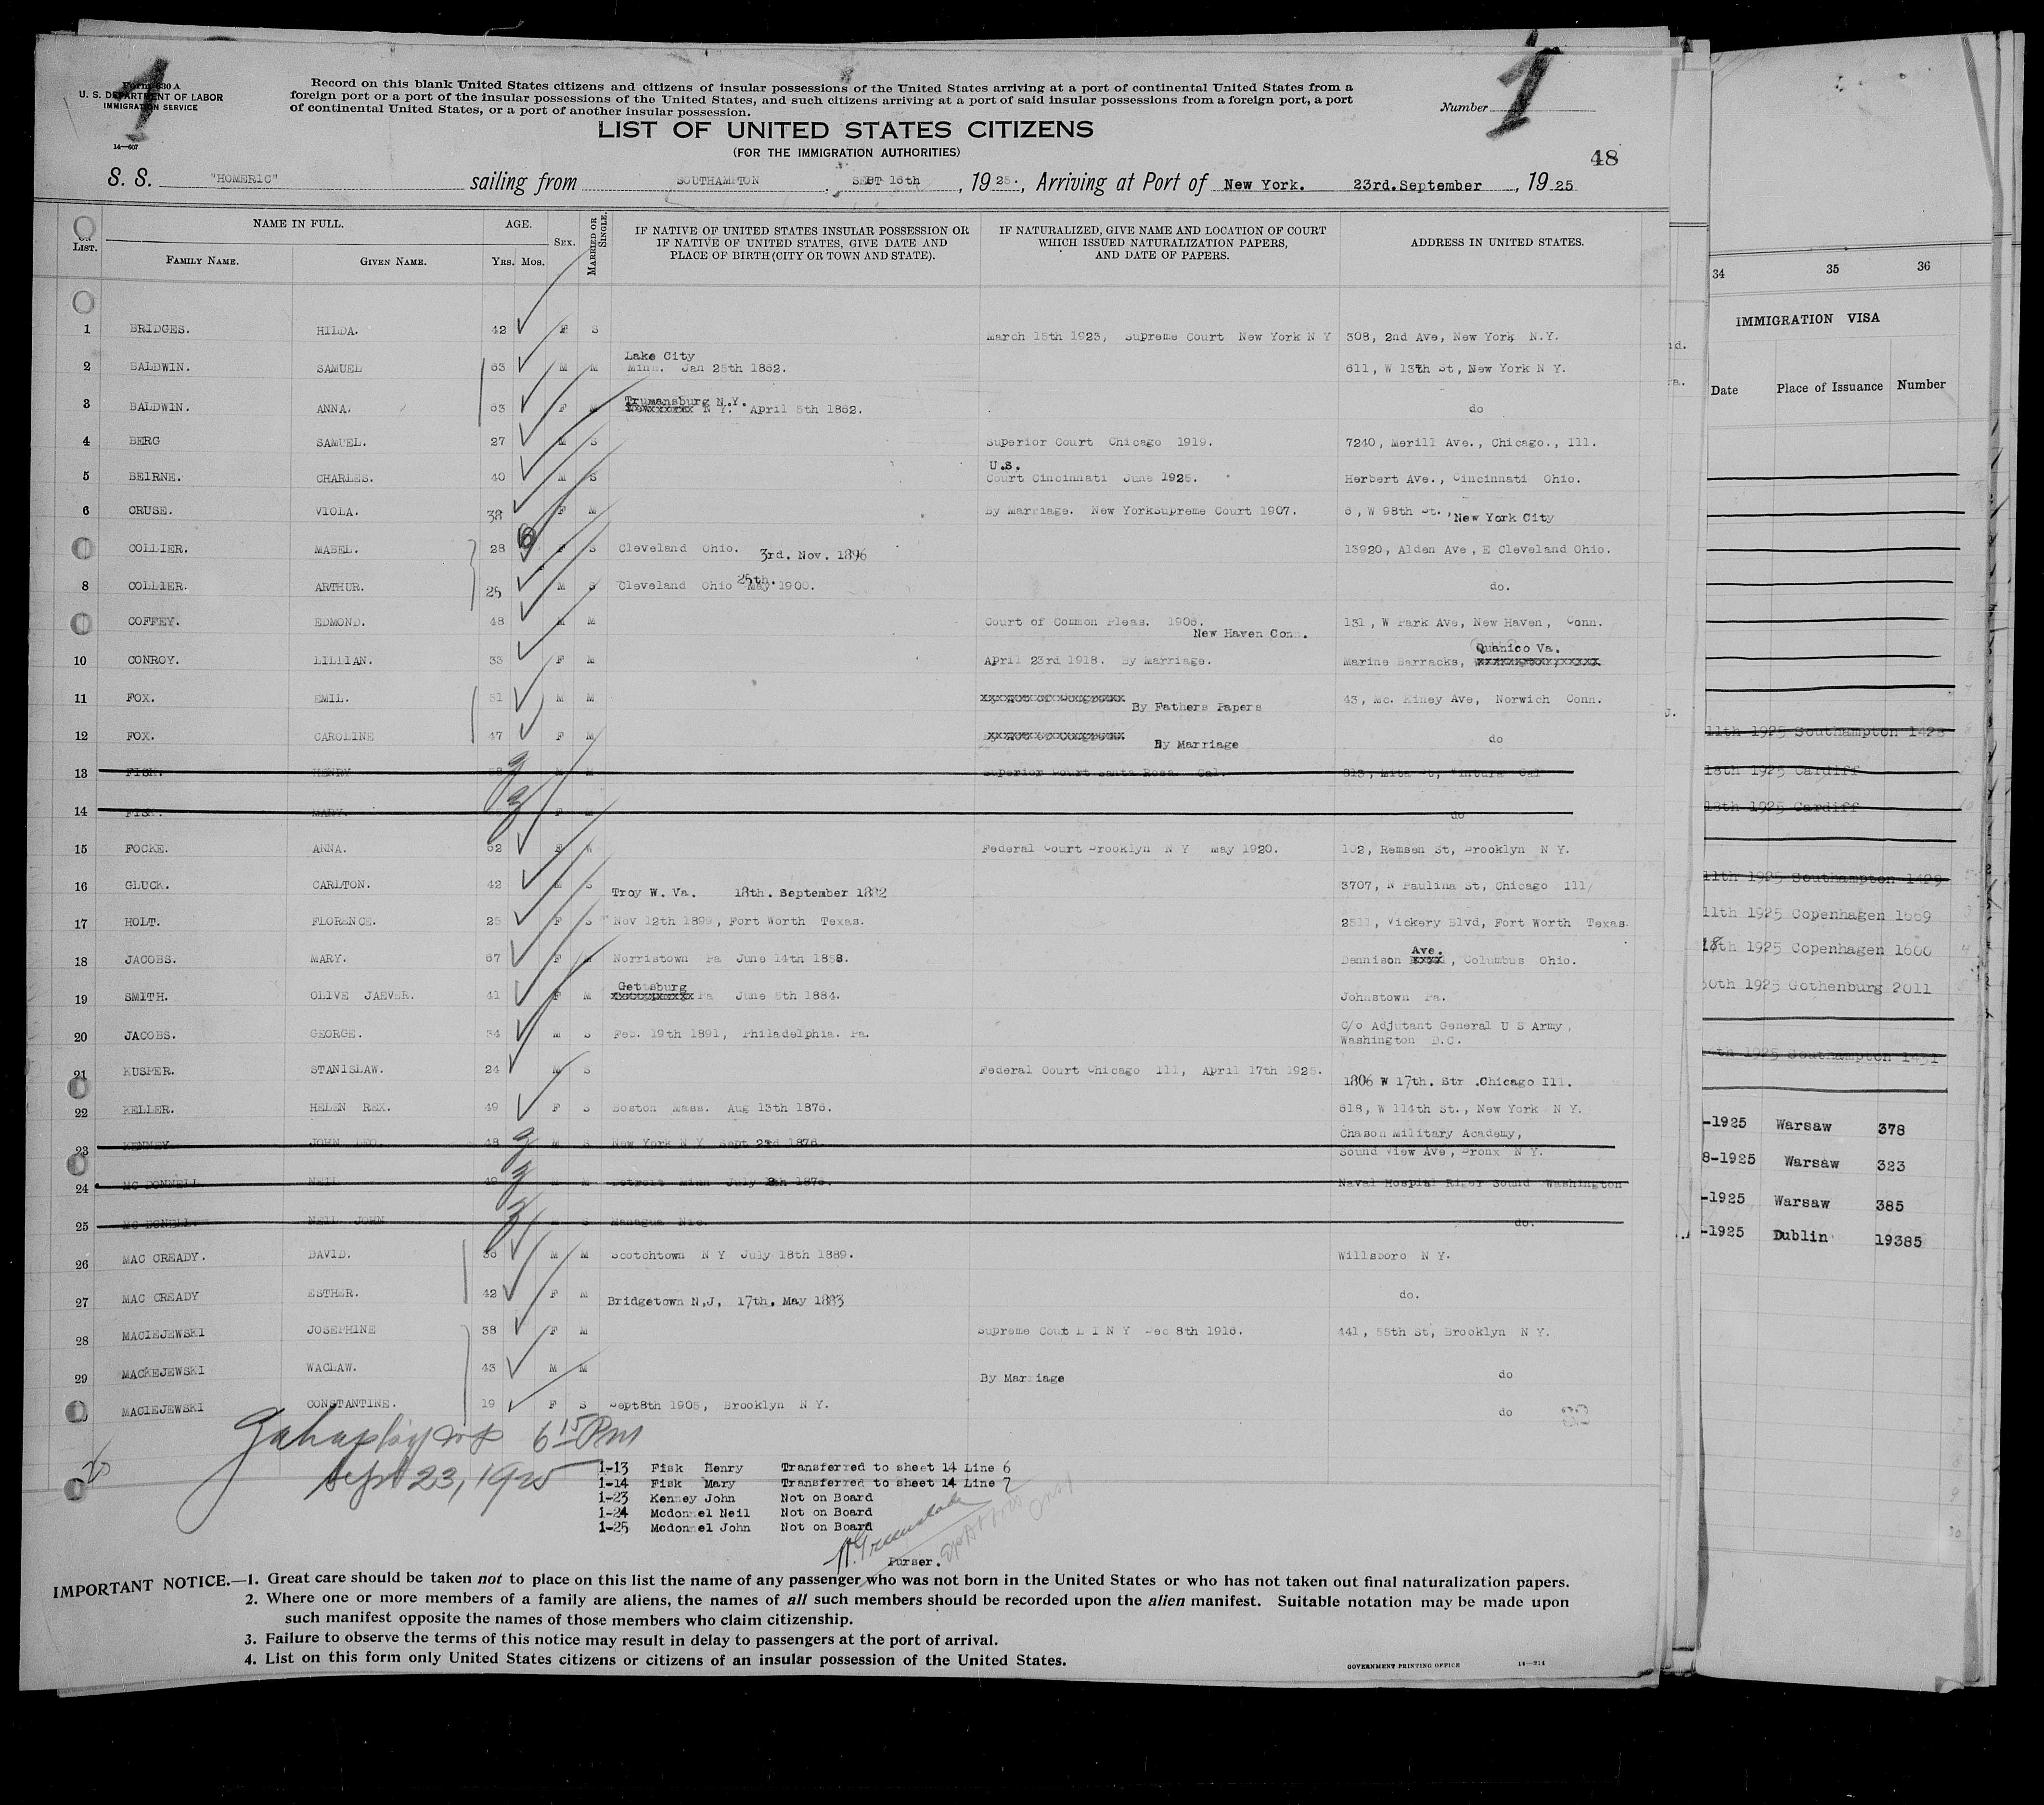 Form 630 A
U. S. DEPARTMENT OF LABOR
IMMIGRATION SERVICE
14—607
1
Record on this blank United States citizens and citizens of insular possessions of the United States arriving at a port of continental United States from a
foreign port or a port of the insular possessions of the United States, and such citizens arriving at a port of said insular possessions from a foreign port, a port
of continental United States, or a port of another insular possession.
Number 1
LIST OF UNITED STATES CITIZENS
(FOR THE IMMIGRATION AUTHORITIES)
48
S. S. "HOMERIC" sailing from SOUTHAMPTON, SEPT 16th, 1925., Arriving at Port of New York. 23rd.September, 1925
LIST. NAME IN FULL. FAMILY NAME. GIVEN NAME. AGE. YRS. MOS. SEX. MARRIED OR SINGLE. IF NATIVE OF UNITED STATES INSULAR POSSESSION OR IF NATIVE OF UNITED STATES, GIVE DATE AND PLACE OF BIRTH (CITY OR TOWN AND STATE). IF NATURALIZED, GIVE NAME AND LOCATION OF COURT WHICH ISSUED NATURALIZATION PAPERS, AND DATE OF PAPERS. ADDRESS IN UNITED STATES.
1 BRIDGES. HILDA. 42 F S March 15th 1923, Supreme Court New York N Y 308, 2nd Ave, New York N.Y.
2 BALDWIN. SAMUEL 63 M M Lake City Minn. Jan 25th 1862. 611, W 13th St, New York N Y.
3 BALDWIN. ANNA. 63 F M Trumansburg N.Y. N Y. April 5th 1862. do
4 BERG SAMUEL. 27 M S Superior Court Chicago 1919. 7240, Merill Ave., Chicago., Ill.
5 BEIRNE. CHARLES. 40 M S U.S. Court Cincinnati June 1925. Herbert Ave., Cincinnati Ohio.
6 CRUSE. VIOLA. 38 F M By Marriage. New YorkSupreme Court 1907. 6, W 98th St., New York City
COLLIER. MABEL. 28 F S Cleveland Ohio. 3rd. Nov. 1896 13920, Alden Ave, E Cleveland Ohio.
8 COLLIER. ARTHUR. 25 M S Cleveland Ohio 25th. May 1900. do.
COFFEY. EDMOND. 48 M M Court of Common Pleas. 1906. New Haven Conn. 131, W Park Ave, New Haven, Conn.
10 CONROY. LILLIAN. 33 F M April 23rd 1918. By Marriage. Marine Barracks, Quanico Va.
11 FOX. EMIL. 51 M M By Fathers Papers 43, Mc. Kiney Ave, Norwich Conn.
12 FOX. CAROLINE 47 F M By Marriage do
13 FISK. HENRY M M Superior Court Santa Rosa Cal.
14 FISK. MARY. F M do
15 FOCKE. ANNA. 62 F W Federal Court Brooklyn N Y May 1920. 102, Remsen St, Brooklyn N Y.
16 GLUCK. CARLTON. 42 M S Troy W. Va. 18th. September 1882 3707, N Paulina St, Chicago Ill/
17 HOLT. FLORENCE. 25 F S Nov 12th 1899, Fort Worth Texas. 2511, Vickery Blvd, Fort Worth Texas.
18 JACOBS. MARY. 67 F M Norristown Pa June 14th 1858. Dennison Ave., Columbus Ohio.
19 SMITH. OLIVE JAEVER. 41 F M Gettsburg Pa June 5th 1884. Johnstown Pa.
20 JACOBS. GEORGE. 34 M S Feb. 19th 1891, Philadelphia. Pa. C/o Adjutant General U S Army, Washington D.C.
21 KUSPER. STANISLAW. 24 M S Federal Court Chicago Ill, April 17th 1925. 1806 W 17th. Str .Chicago Ill.
22 KELLER. HELEN REX. 49 F S Boston Mass. Aug 13th 1876. 618, W 114th St., New York N Y.
23 KENNEY JOHN LEO. 48 M S New York N Y Sept 23rd 1876. Chason Military Academy, Sound View Ave, Bronx N Y.
24 MC DONNELL NEIL 49 M M Detroit Minn July 8th 1876. Naval Hospital Riger Sound Washington
25 MC DONELL. NEIL JOHN M S Managua Nic. do.
26 MAC CREADY. DAVID. 36 M M Scotchtown N Y July 18th 1889. Willsboro N Y.
27 MAC CREADY ESTHER. 42 F M Bridgetown N,J, 17th. May 1883 do.
28 MACIEJEWSKI JOSEPHINE 38 F M Supreme Court L I N Y Dec 8th 1916. 441, 55th St, Brooklyn N Y.
29 MACKEJEWSKI WACLAW. 43 M M By Marriage do
MACIEJEWSKI CONSTANTINE. 19 F S Sept8th 1905, Brooklyn N Y. do
6 15 Pm
Sept 23, 1925
1-13 Fisk Henry Transferred to sheet 14 Line 6
1-14 Fisk Mary Transferred to sheet 14 Line 7
1-23 Kenney John Not on Board
1-24 Mcdonnel Neil Not on Board
1-25 Mcdonnel John Not on Board
Purser.
IMPORTANT NOTICE.—1. Great care should be taken not to place on this list the name of any passenger who was not born in the United States or who has not taken out final naturalization papers.
2. Where one or more members of a family are aliens, the names of all such members should be recorded upon the alien manifest. Suitable notation may be made upon
such manifest opposite the names of those members who claim citizenship.
3. Failure to observe the terms of this notice may result in delay to passengers at the port of arrival.
4. List on this form only United States citizens or citizens of an insular possession of the United States.
GOVERNMENT PRINTING OFFICE 14—214
34 35 36
IMMIGRATION VISA
Date Place of Issuance Number
11th 1925 Southampton 1428
18th 1925 Cardiff
18th 1925 Cardiff
11th 1925 Southampton 1429
11th 1925 Copenhagen 1669
18th 1925 Copenhagen 1600
30th 1925 Gothenburg 2011
1925 Southampton 1431
-1925 Warsaw 378
8-1925 Warsaw 323
-1925 Warsaw 385
-1925 Dublin 19385